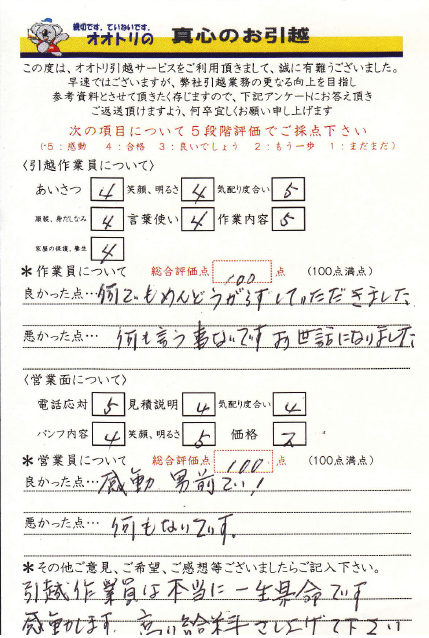 親切です。ていねいです。
オオトリの 真心のお引越
この度は、オオトリ引越サービスをご利用頂きまして、誠に有難うございました。
早速ではございますが、弊社引越業務の更なる向上を目指し
参考資料とさせて頂きたく存じますので、下記アンケートにお答え頂き
ご返送頂けますよう、何卒宜しくお願い申し上げます
次の項目について5段階評価でご採点下さい
(5：感動 4：合格 3：良いでしょう 2：もう一歩 1：まだまだ)
〈引越作業員について〉
あいさつ 4 笑顔、明るさ 4 気配り度合い 5
服装、身だしなみ 4 言葉使い 4 作業内容 5
家屋の保護、養生 4
＊作業員について 総合評価点 100 点 (100点満点)
良かった点…何でもめんどうがらずしていただきました
悪かった点… 何も言う事ないですお世話になりました
〈営業面について〉
電話応対 5 見積説明 4 気配り度合い 4
パンフ内容 4 笑顔、明るさ 5 価格 2
＊営業員について 総合評価点 100 点 (100点満点)
良かった点… 感動 男前でい!
悪かった点… 何もないです。
＊その他ご意見、ご希望、ご感想等ございましたらご記入下さい。
引越作業員は本当に一生県命です
感動します。高い給料さし上げて下さい